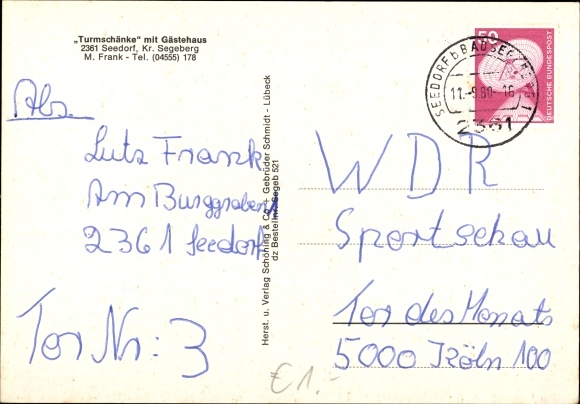 „Turmschänke“ mit Gästehaus
2361 Seedorf, Kr. Segeberg
M. Frank - Tel. (04555) 178
Abs.
Lutz Frank
Am Burggraben 1
2361 Seedorf
Tor Nr: 3
Herst. u. Verlag Schöning & Co + Gebrüder Schmidt - Lübeck
dz Bestellnr. Segeb 521
50
DEUTSCHE BUNDESPOST
SEEDORF b BAD SEGEBERG 1
11.-9.80-16
2361
WDR
Sportschau
Tor des Monats
5000 Köln 100
€ 1.-